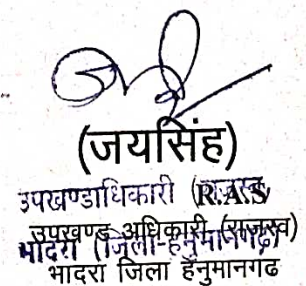 (जयसिंह)
उपखण्डाधिकारी (R.A.S)
उपखण्ड अधिकारी (राजस्व)
भादरा (जिला-हनुमानगढ़)
भादरा जिला हनुमानगढ